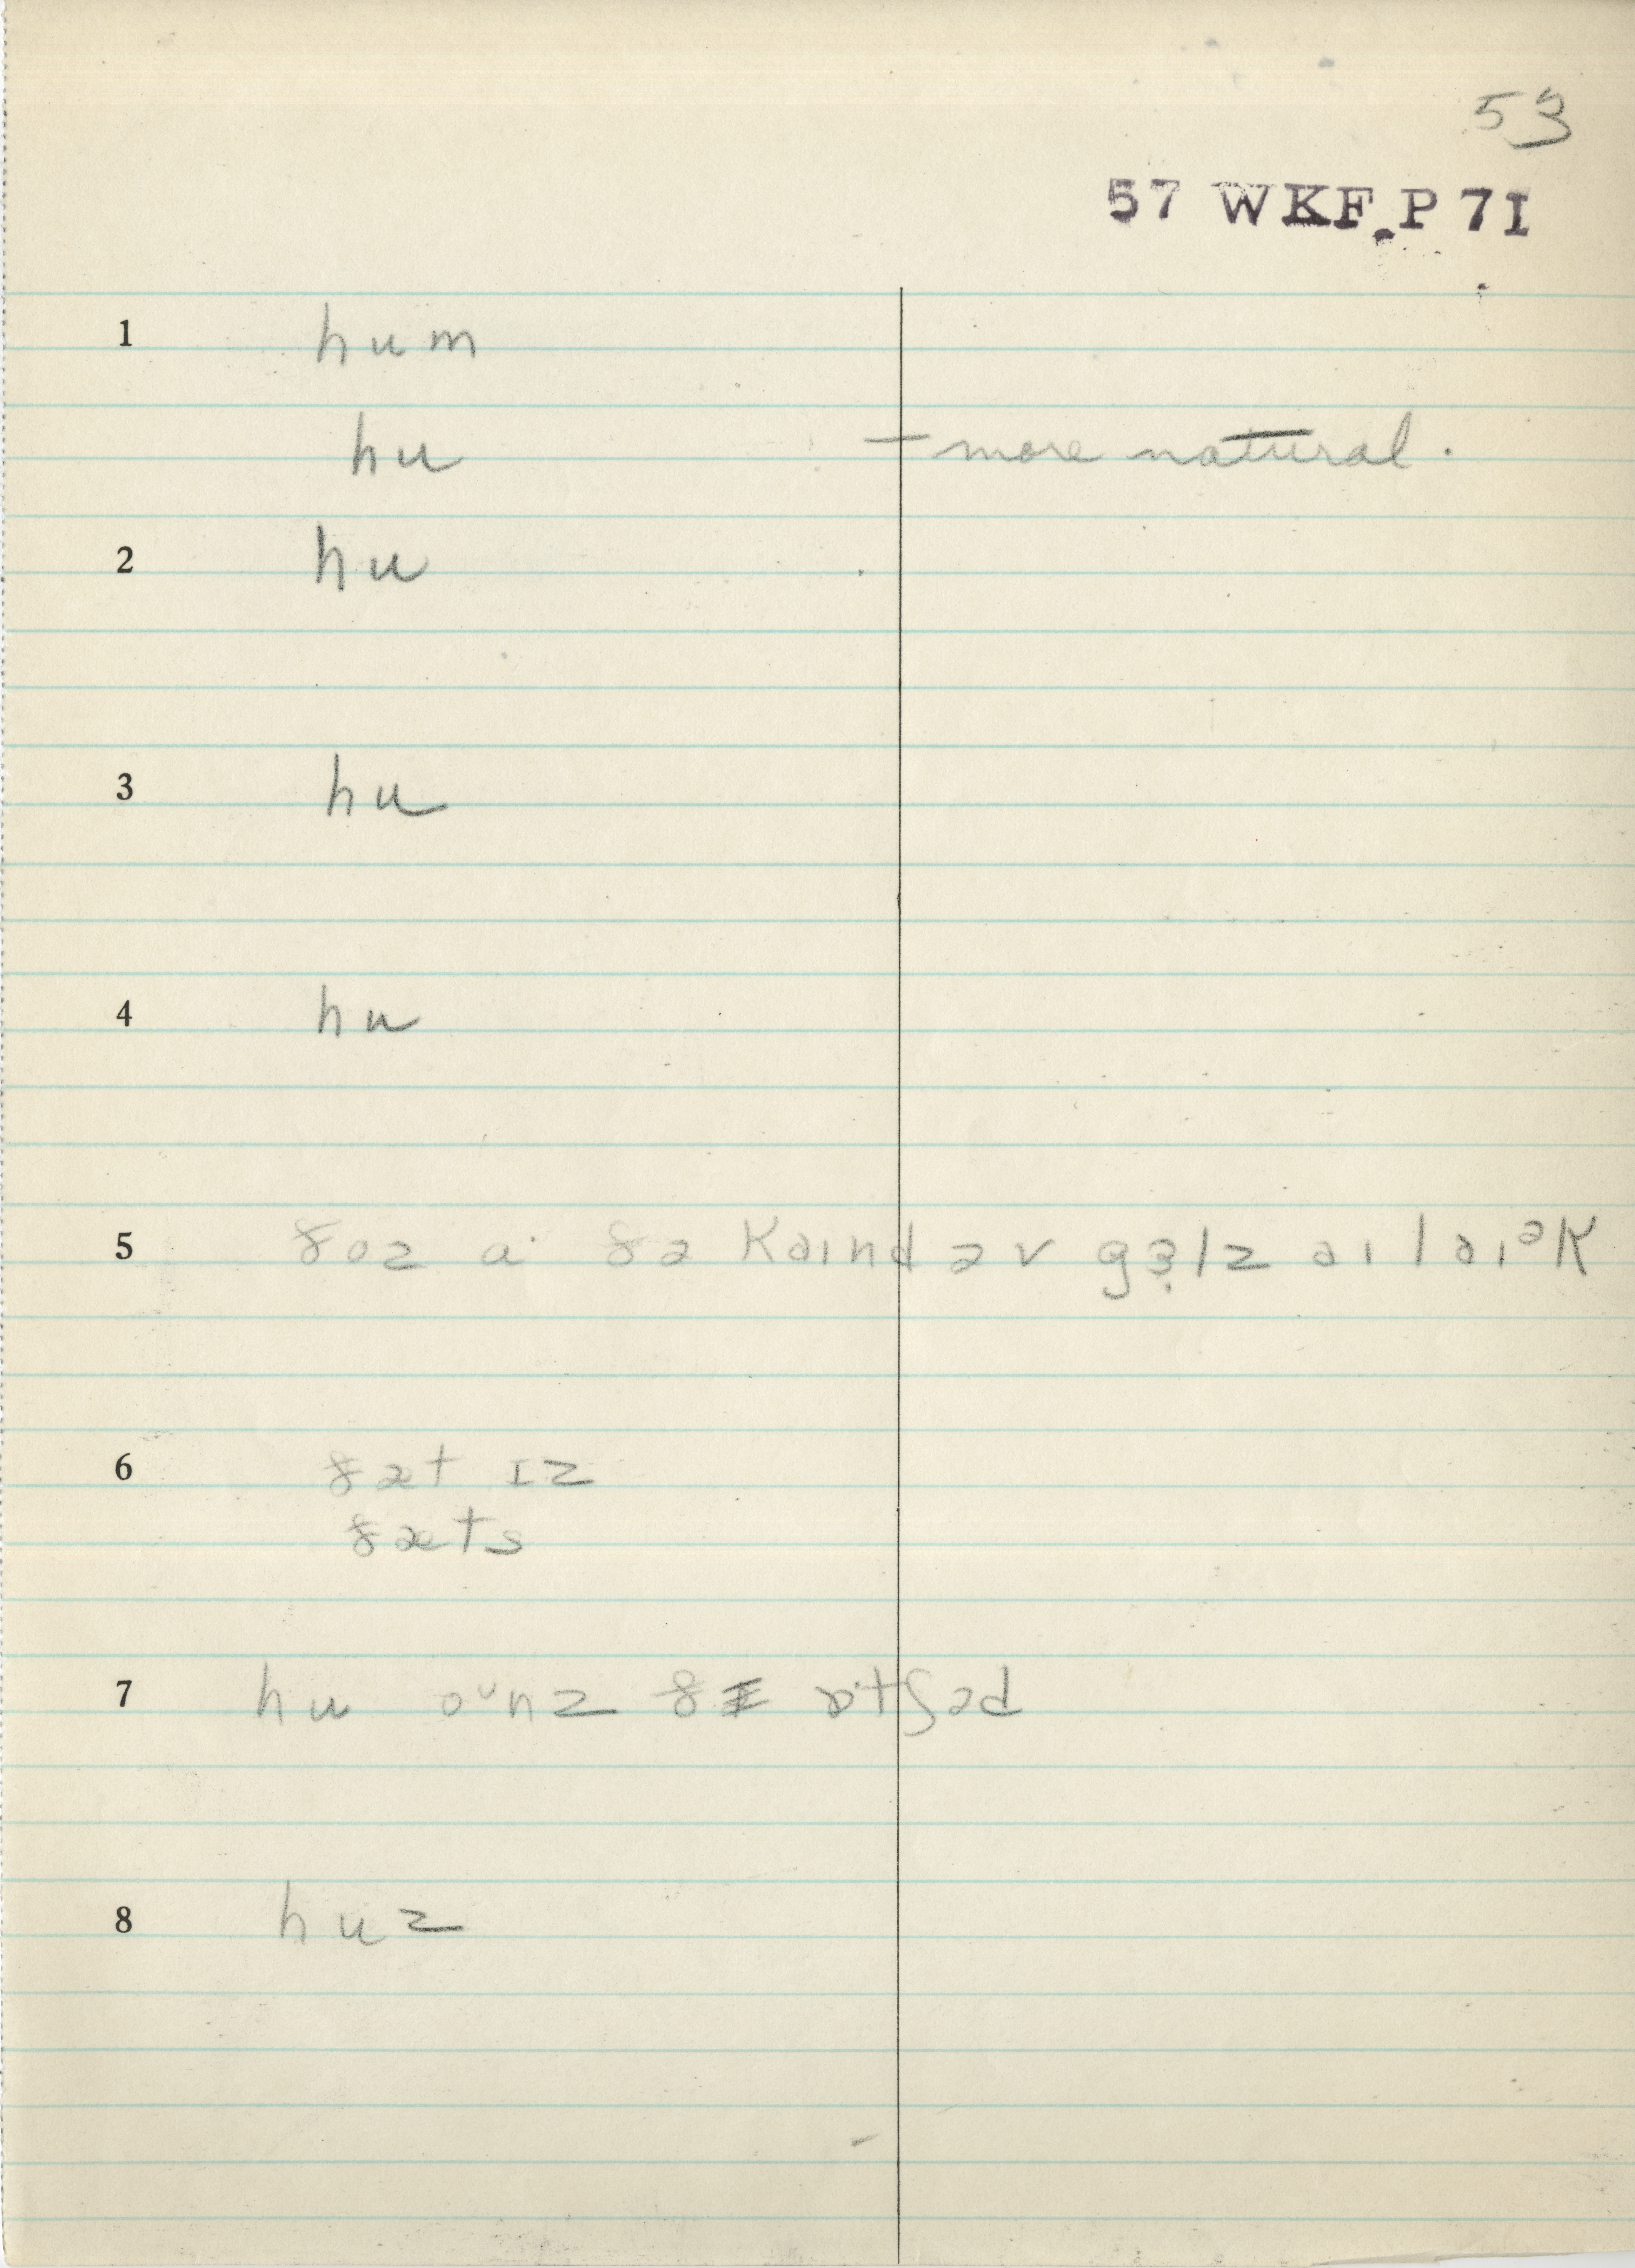 53
57 WKF.P 7I
1 hum
hu — more natural.
2 hu
3 hu
4 hu
5 ðoz aˑ ðə kaɪnd əv gɜ̣lz aɪ laɪᵊk
6 ðæt ɪz
ðæts
7 hu oᶷnz ðɪ ɒˑtʃəd
8 huz